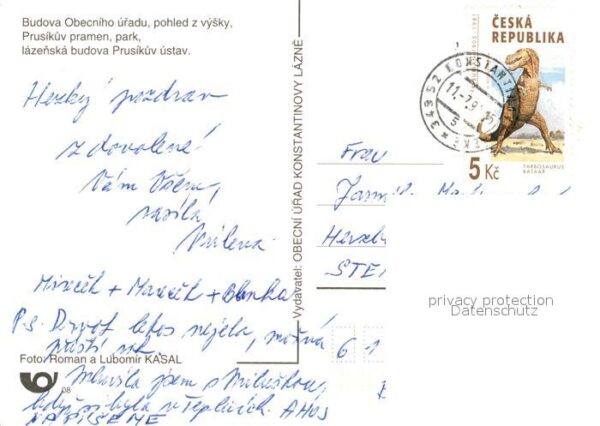 Budova Obecního úřadu, pohled z výšky,
Prusíkův pramen, park,
lázeňská budova Prusíkův ústav.
Hezký pozdrav
z dovolené
Vám Všem,
posílá
Milena
Mireček + Mareček + Blanka
P.s. letos nejela, možná
příští rok.
Mluvila jsem s Miluškou,
když byla v Teplicích. AHOJ
NAPÍŠEME
Foto: Roman a Lubomír KASAL
08
Vydavatel: OBECNÍ ÚŘAD KONSTANTINOVY LÁZNĚ
ČESKÁ
REPUBLIKA
5 Kč
TARBOSAURUS
BATAAR
349 52 KONSTANTINOVY
Frau
6 1
privacy protection
Datenschutz